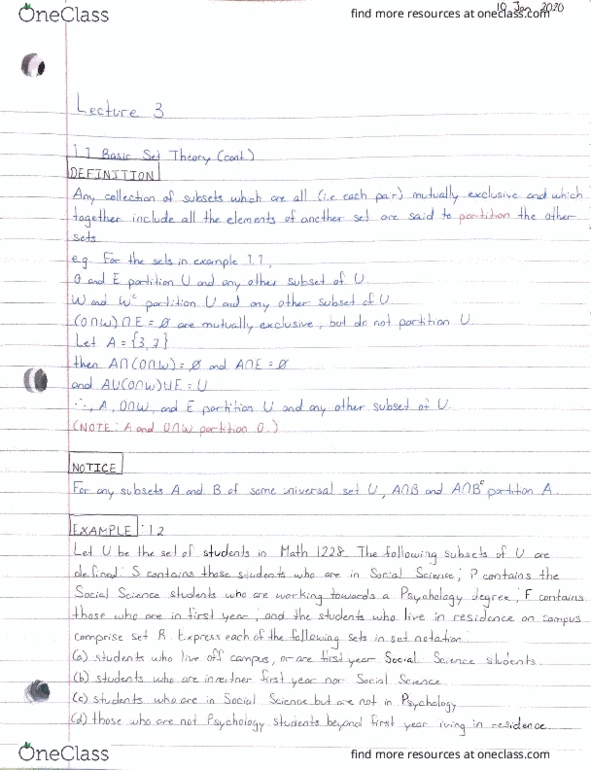 OneClass
find more resources at oneclass.com
10 Jan 2020
Lecture 3
1.1 Basic Set Theory (cont.)
DEFINITION
Any collection of subsets which are all (i.e each pair) mutually exclusive and which
together include all the elements of another set are said to partition the other
sets
e.g. For the sets in example 1.1,
O and E partition U and any other subset of U.
W and Wᶜ partition U and any other subset of U.
(O∩W)∩E = Ø are mutually exclusive, but do not partition U.
Let A = {3,7}
then A∩(O∩W) = Ø and A∩E = Ø
and A∪(O∩W)∪E = U
∴, A, O∩W, and E partition U and any other subset of U.
(NOTE: A and O∩W partition O.)
NOTICE
For any subsets A and B of some universal set U, A∩B and A∩Bᶜ partition A.
EXAMPLE: 1.2
Let U be the set of students in Math 1228. The following subsets of U are
defined: S contains those students who are in Social Science; P contains the
Social Science students who are working towards a Psychology degree; F contains
those who are in first year; and the students who live in residence on campus
comprise set R. Express each of the following sets in set notation:
(a) students who live off campus, or are first year Social Science students.
(b) students who are in neither first year nor Social Science.
(c) students who are in Social Science but are not in Psychology
(d) those who are not Psychology students beyond first year living in residence.
OneClass
find more resources at oneclass.com